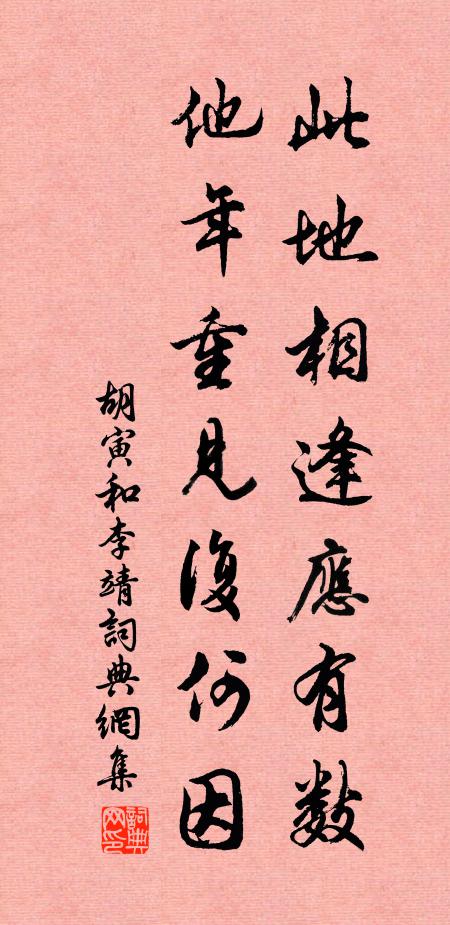 此地相逢應有數
他年重見復何因
胡寅和李靖詞典網集
詞典网印